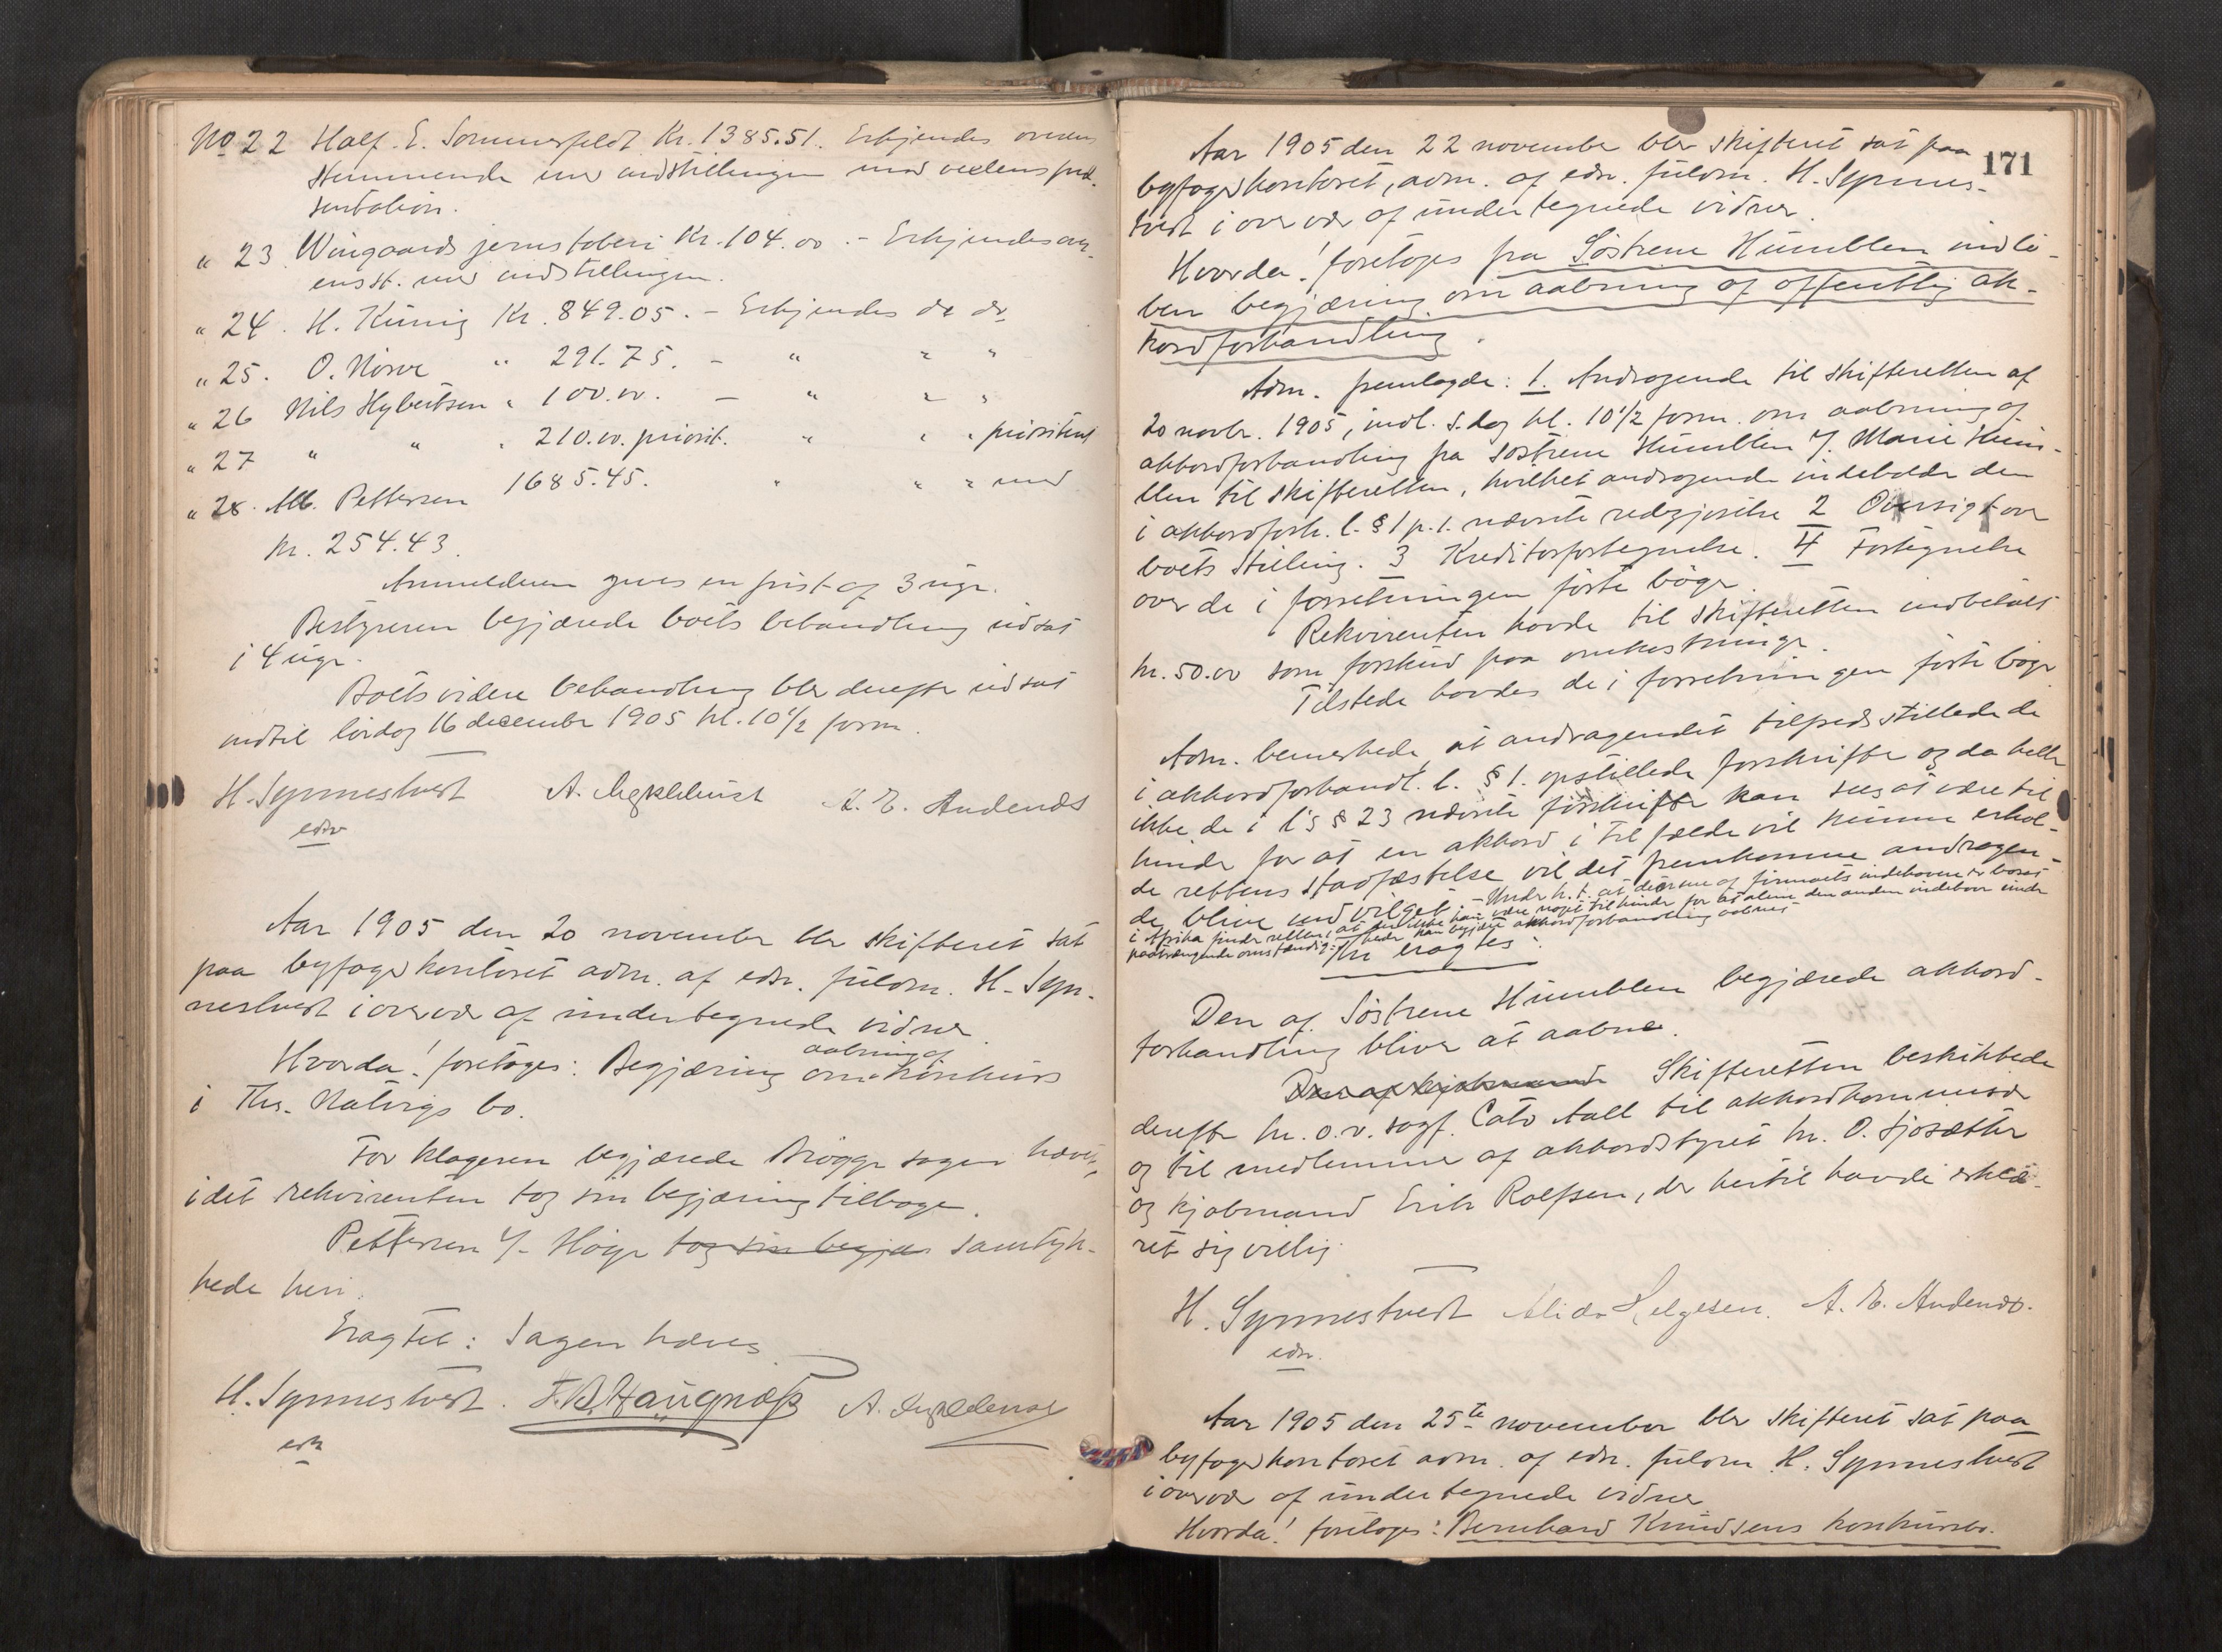 No 22 Half. E. Sommerfeldt Kr. 1385.51. Erkjendes overens
stemmende med indstillingen mod vexlens præ-
sentation.
" 23 Wingaards jernstøberi Kr. 104.00. - Erkjendes over-
ensst. med indstillingen.
" 24. H. König Kr. 849.05. - Erkjendes do do
" 25. O. Nörve " 291.75. - " " "
" 26 Nils Hybertsen " 100.00. - " " "
" 27 " " " 210.00. priorit. " " " prioritet
" 28. Alb. Pettersen 1685.45. " " " med
kr. 254.43.
Anmelderen gives en frist af 3 uger.
Bestyreren begjærede boets behandling udsat
i 4 uger.
Boets videre behandling blev derefter udsat
indtil lørdag 16 december 1905 kl. 10 1/2 form.
H. Synnestvedt A. A. E. Andenæs
edsv
Aar 1905 den 20 november blev skifteret sat
paa byfogedkontoret adm. af edsv. fuldm. H. Syn-
nestvedt i overvær af undertegnede vidner.
Hvorda! foretoges: Begjæring om aabning af konkurs
i Ths. Natvigs bo.
For klageren begjærede Brøgger sagen hævet,
idet rekvirenten tog sin begjæring tilbage.
Pettersen f/ Høyer tog sin begjær samtyk-
kede heri.
Eragtet: Sagen hæves
H. Synnestvedt. F. B. Haugnæss A.
edsv
171
Aar 1905 den 22 november blev skifteret sat paa
byfogedkontoret, adm. af edsv. fuldm. H. Synnes-
tvedt i overvær af undertegnede vidner.
Hvorda! foretoges fra Søstrene Humblen indlø-
ben begjæring om aabning af offentlig ak-
kordforhandling.
Adm. fremlagde: 1. Andragende til skifteretten af
20 novbr. 1905, indl. s. dag kl. 10 1/2 form. om aabning af
akkordforhandling fra Søstrene Humblen v/ Marie Hum-
blen til skifteretten, hvilket andragende indeholder den
i akkordforh. l. § 1 p. 1. nævnte redegjørelse 2 Oversigt over
boets stilling. 3 Kreditorfortegnelse. 4 Fortegnelse
over de i forretningen førte bøger.
Rekvirenten havde til skifteretten indbetalt
kr. 50.00 som forskud paa omkostninger.
Tilstede havdes de i forretningen førte bøger
Adm. bemerkede, at andragendet tilfredsstillede de
i akkordforhandl. l. § 1. opstillede forskrifter og da heller
ikke de i l's § 23 nævnte forskrifter kan sees at være til
hinder for at en akkord i tilfælde vil kunne erhol-
de rettens stadfæstelse vil det fremkomne andragen-
de blive indvilget. - Under h. t. at den ene af firmaets indehavere er bosat
i Afrika finder retten, at der ikke kan være noget til hinder for at alene den anden indehaver under
paatrængende omstændigheder kan begjære akkordforhandling aabnet
Thi eragtes:
Den af Søstrene Humblen begjærede akkord-
forhandling bliver at aabne.
Den af kjøbmand Skifteretten beskikkede
derefter hr. o.r. sagf. Cato Aall til akkordkommissær
og til medlemmer af akkordstyret hr. O. Sjøsæther
og kjøbmand Erik Rolfsen, der hertil havde erklæ-
ret sig villig.
H. Synnestvedt Alida Helgesen. A. E. Andenæs.
edsv.
Aar 1905 den 25te november blev skifteret sat paa
byfogedkontoret adm. af edsv. fuldm H. Synnestvedt
i overvær af undertegnede vidner
Hvorda! foretoges: Bernhard Knudsens konkursbo.